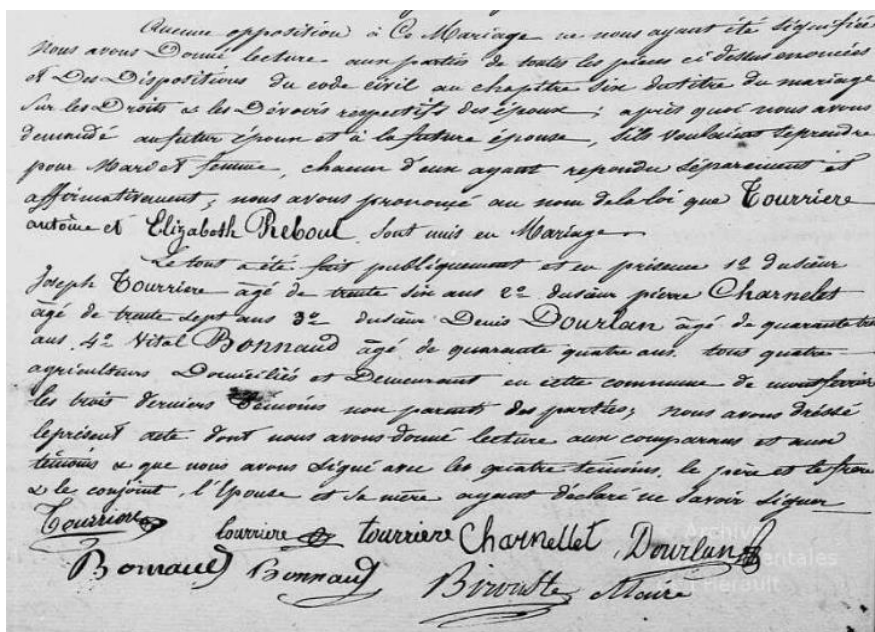 Aucune opposition à Ce Mariage ne nous ayant été signifiée
Nous avons Donné lecture aux parties de toutes les pieces ci dessus enoncées
et Des Dispositions du code civil au chapitre six du titre du mariage
Sur les Droits & les Dévoirs respectifs des époux ; après quoi nous avons
demandé au futur époux et à la future épouse, s'ils voulaient se prendre
pour Mari et femme, chacun d'eux ayant repondu séparément et
affirmativement ; nous avons prononcé au nom de la loi que Tourriere
antoine et Elizabeth Reboul sont unis en Mariage.
Le tout a été fait publiquement et en présence 1º du sieur
Joseph Tourriere âgé de trente six ans 2º du sieur pierre Charnelet
âgé de trente sept ans 3º du sieur Denis Dourlan âgé de quarante
ans 4º Vital Bonnaud âgé de quarante quatre ans tous quatre
agriculteurs Domiciliés et Demeurant en cette commune de montferrier
les trois derniers témoins non parent des parties ; nous avons dréssé
le présent acte dont nous avons donné lecture aux comparans et aux
témoins & que nous avons signé avec les quatre témoins, le père et le frère
& le conjoint, l'Epouse et sa mère ayant déclaré ne savoir signer
Tourriere tourriere tourriere Charnellet Dourlan
Bonnaud Bonnaud Birouste Maire
Archives
départementales
de l'Hérault